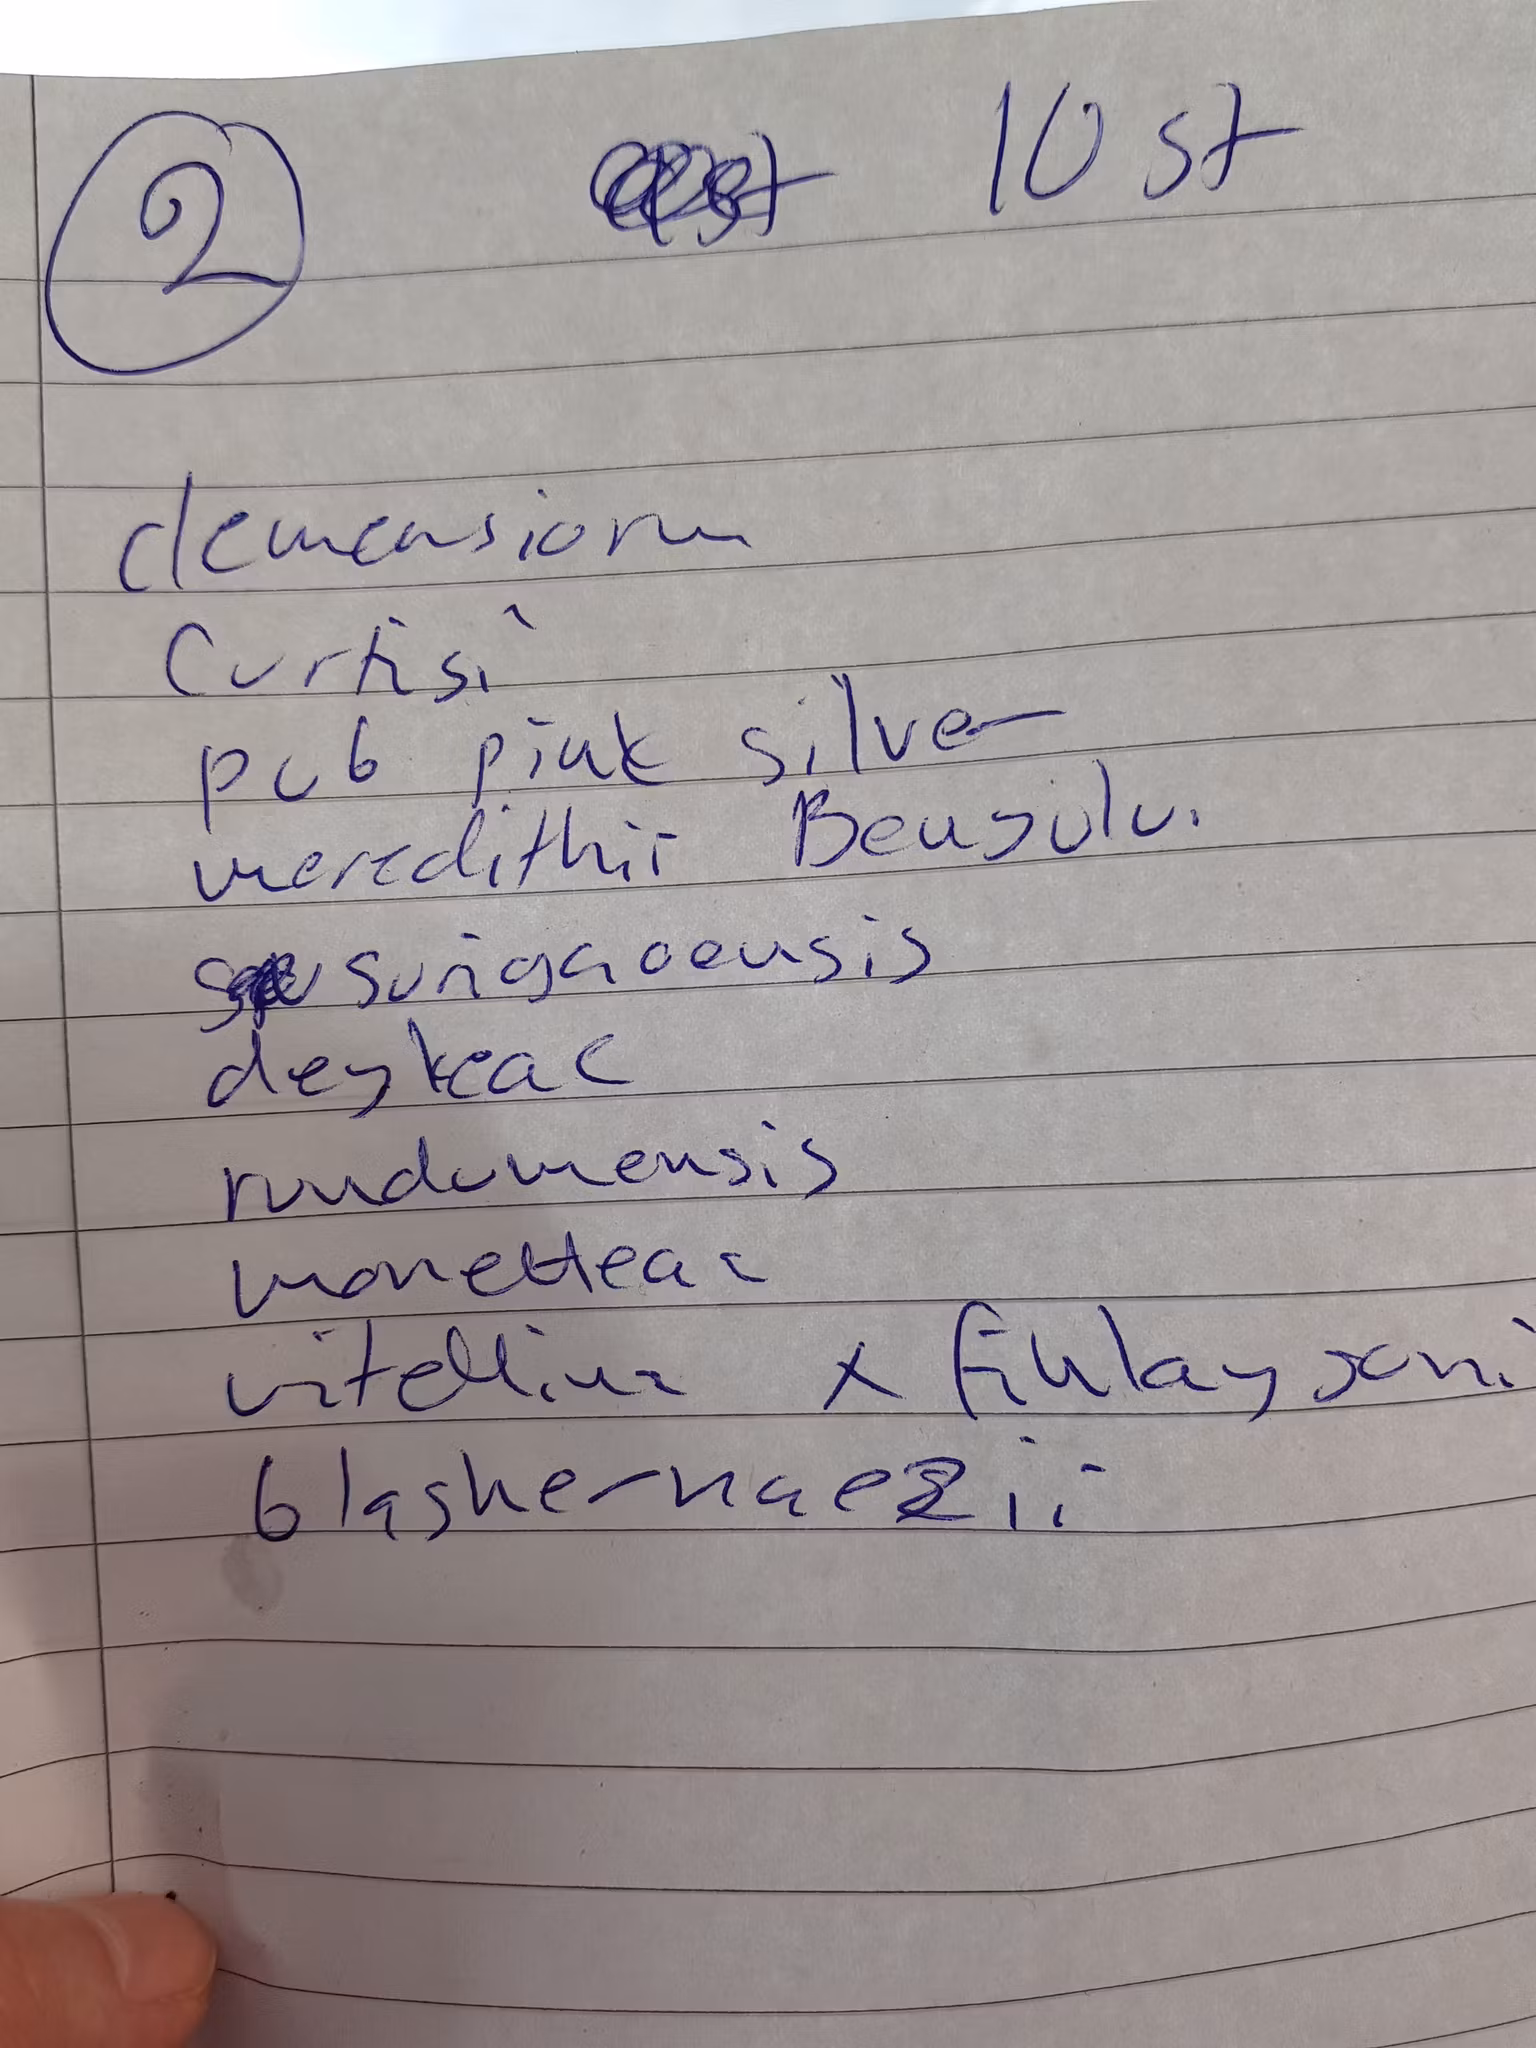 2 10 st
clemensiorum
Curtisi
pub pink silver
meredithii Bengulu.
surigaoensis
deykeae
rundumensis
monetteae
vitellina x finlaysoni
blashernaezii